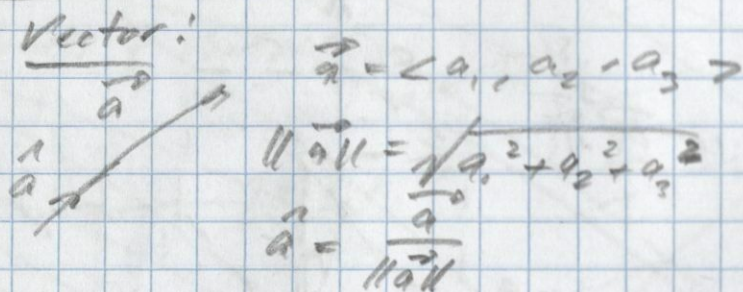 Vector:
a⃗
â
a⃗ = < a₁, a₂, a₃ >
||a⃗|| = √(a₁² + a₂² + a₃²)
â = a⃗ / ||a⃗||